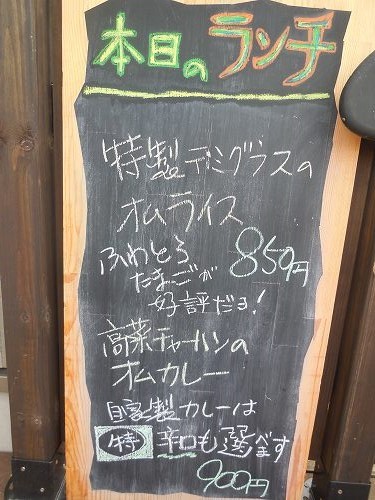 本日のランチ
特製デミグラスの
オムライス
ふわとろ 850円
たまごが
好評だよ!
高菜チャーハンの
オムカレー
自家製カレーは
特 辛口も選べます
900円